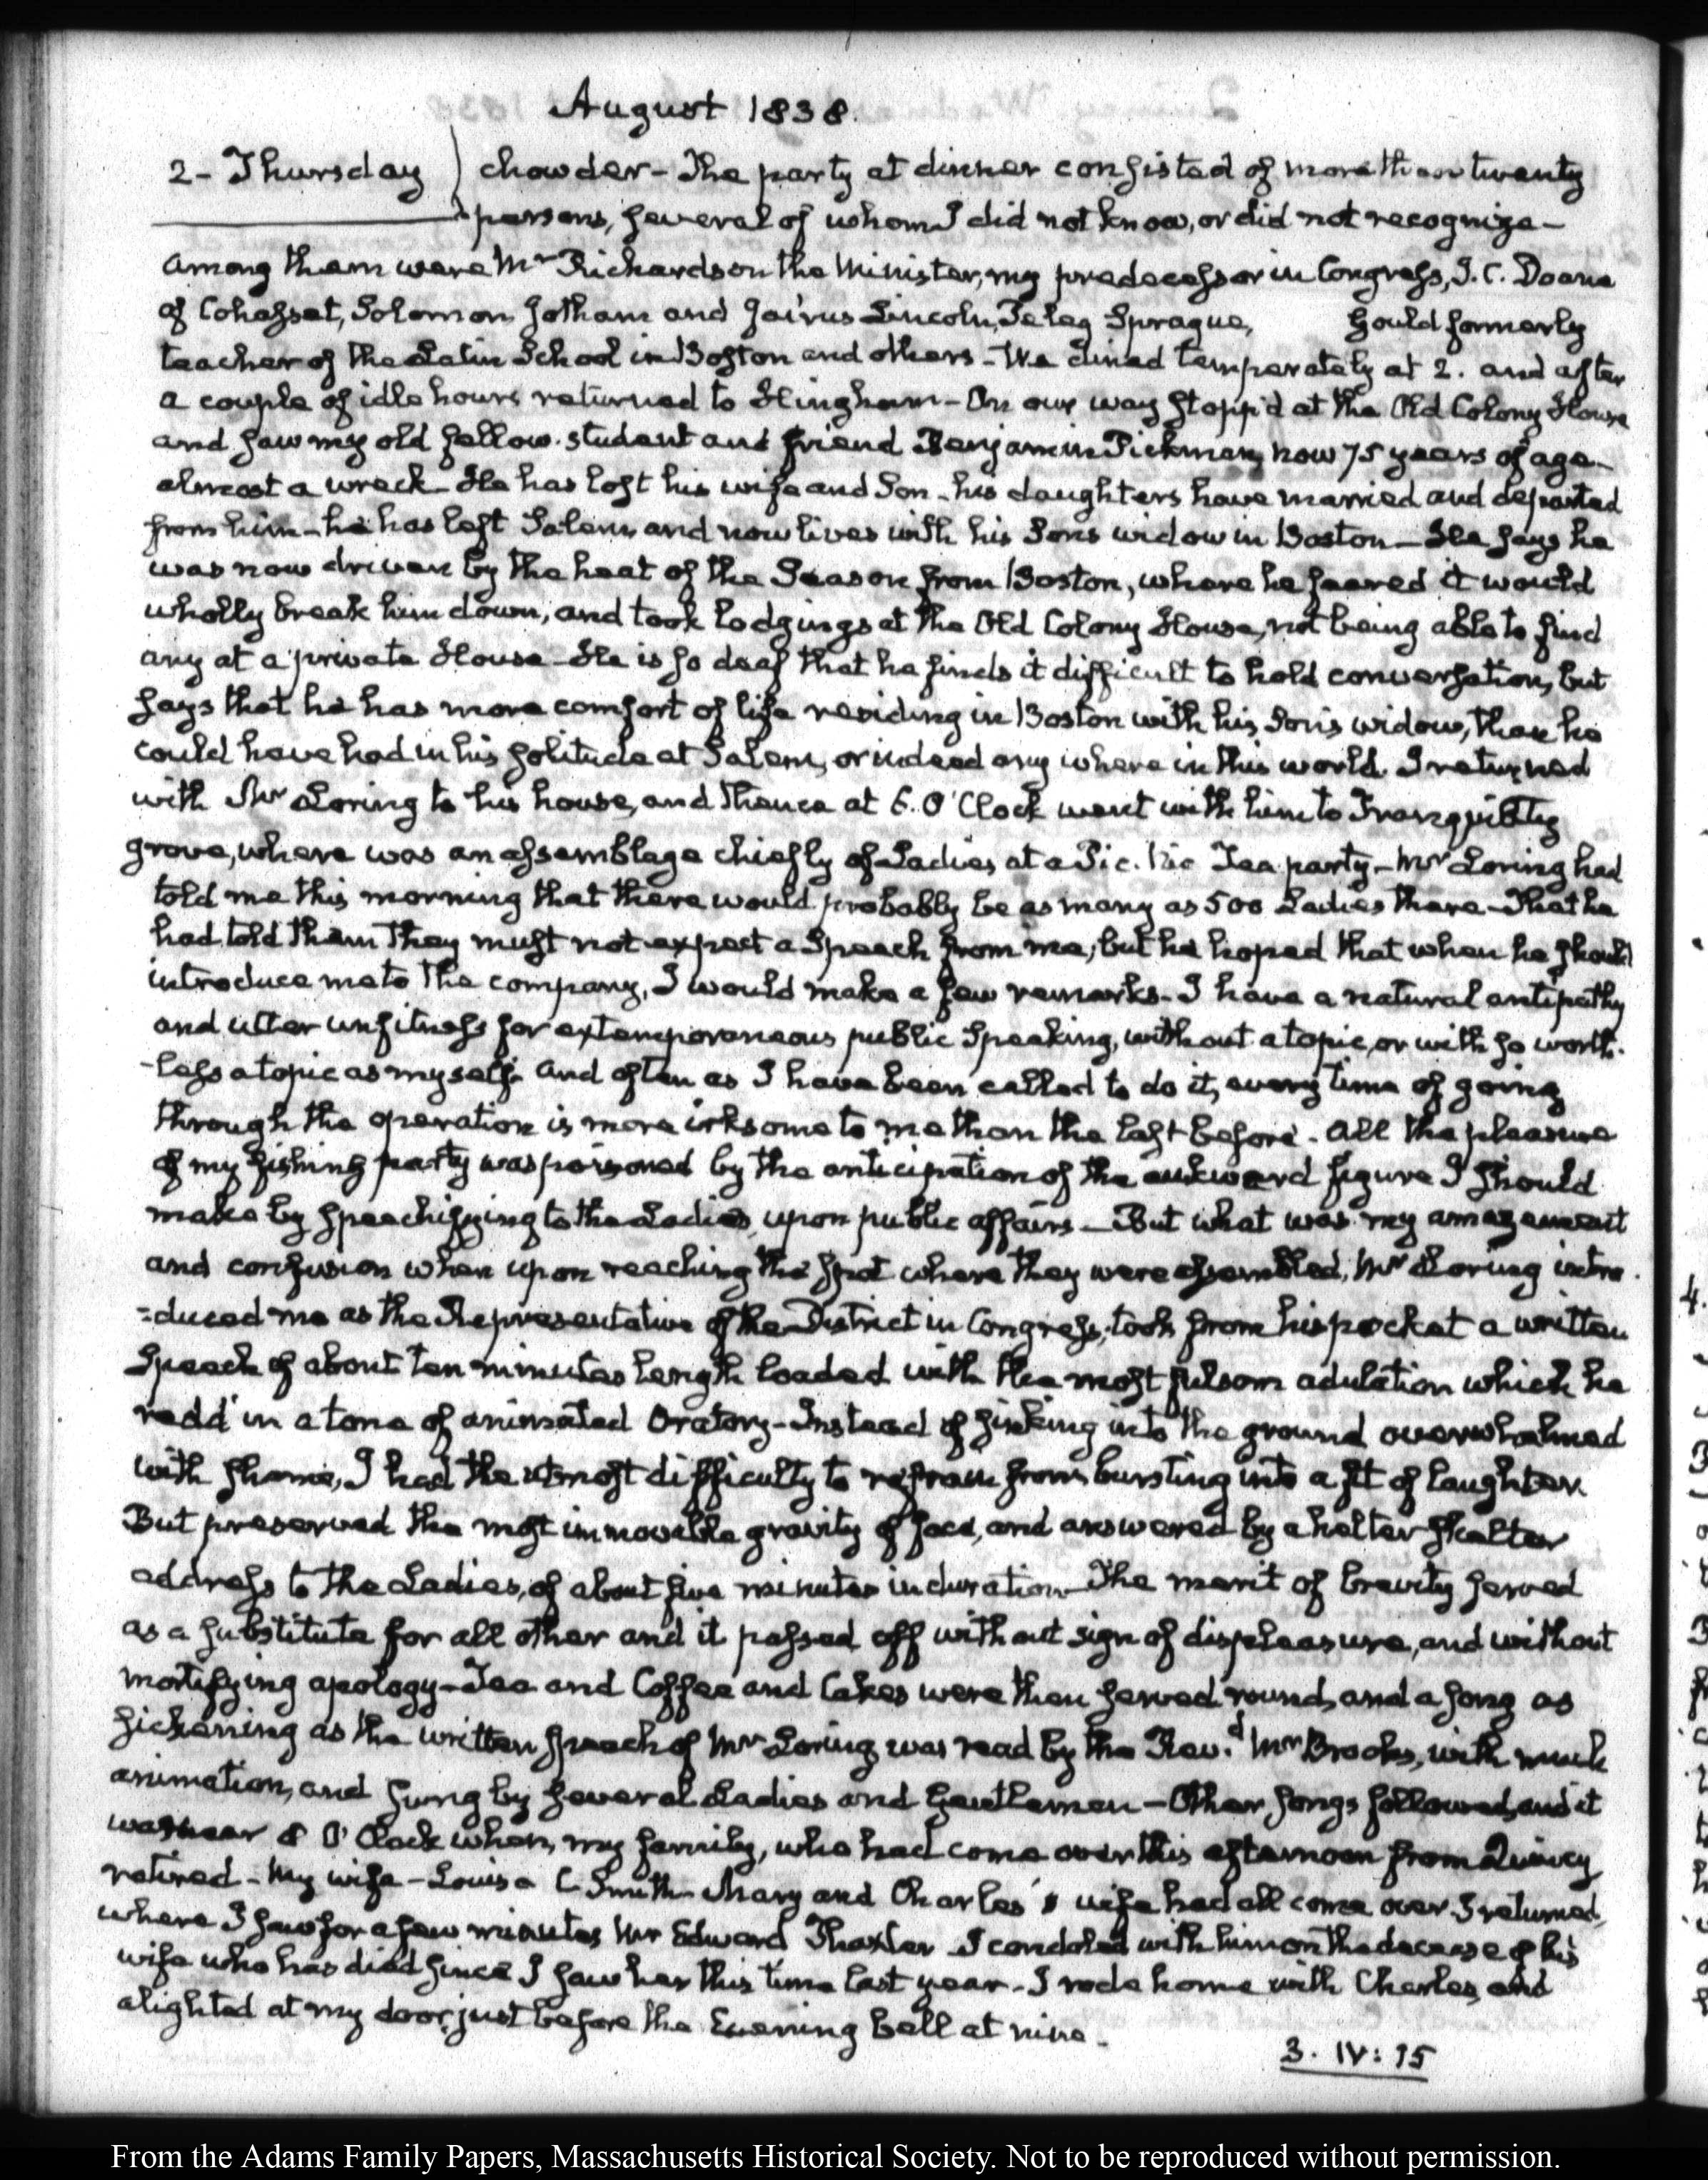 August 1838.
2- Thursday chowder - The party at dinner consisted of more than twenty
persons, several of whom I did not know, or did not recognize -
among them were Mr Richardson the Minister, my predecessor in Congress, J. C. Doane
of Cohasset, Solomon Jotham and Jairus Lincoln, Peleg Sprague, Gould formerly
teacher of the Latin School in Boston and others - We dined temperately at 2. and after
a couple of idle hours returned to Hingham - On our way stopp'd at the Old Colony House
and saw my old fellow-student and friend Benjamin Pickman, now 75 years of age -
almost a wreck - He has lost his wife and Son - his daughters have married and departed
from him - he has left Salem, and now lives with his Sons widow in Boston - He says he
was now driven by the heat of the Season from Boston, where he feared it would
wholly break him down, and took lodgings at the Old Colony House, not being able to find
any at a private House - He is so deaf that he finds it difficult to hold conversation, but
says that he has more comfort of life residing in Boston with his Son's widow, than he
could have had in his solitude at Salem, or indeed any where in this world. I returned
with Mr Loring to his house, and thence at 6. O'Clock went with him to Tranquility
grove, where was an assemblage chiefly of Ladies, at a Pic. Nic Tea party - Mr Loring had
told me this morning that there would probably be as many as 500 Ladies there - That he
had told them they must not expect a Speech from me, but he hoped that when he should
introduce me to the company, I would make a few remarks - I have a natural antipathy
and utter unfitness for extemporaneous public Speaking, without a topic, or with so worth-
-less a topic as myself. and often as I have been called to do it, every time of going
through the operation is more irksome to me than the last before. all the pleasure
of my fishing party was poisoned by the anticipation of the awkward figure I should
make by speechifying to the Ladies, upon public affairs - But what was my amazement
and confusion when upon reaching the spot where they were assembled, Mr Loring intro-
=duced me as the Representative of the District in Congress, took from his pocket a written
Speech of about ten minutes length loaded with the most fulsom adulation which he
redd in a tone of animated Oratory - Instead of sinking into the ground overwhelmed
with shame, I had the utmost difficulty to refrain from bursting into a fit of laughter.
But preserved the most immovable gravity of face, and answered by a helter skelter
address to the Ladies, of about five minutes in duration - The merit of brevity served
as a substitute for all other and it passed off without sign of displeasure, and without
mortifying apology - Tea and Coffee and Cakes were then served round, and a song as
sickening as the written speech of Mr Loring, was read by the Rev.d Mr Brooks, with much
animation, and sung by several Ladies and Gentlemen - Other songs followed, and it
was near 8 O'Clock when, my family, who had come over this afternoon from Quincy
retired - My wife - Louisa C Smith - Mary and Charles's wife had all come over. I returned,
where I saw for a few minutes Mr Edward Thaxter - I condoled with him on the decease of his
wife who has died since I saw her this time last year - I rode home with Charles, and
alighted at my door, just before the Evening bell at nine -
3. IV: 15
From the Adams Family Papers, Massachusetts Historical Society. Not to be reproduced without permission.